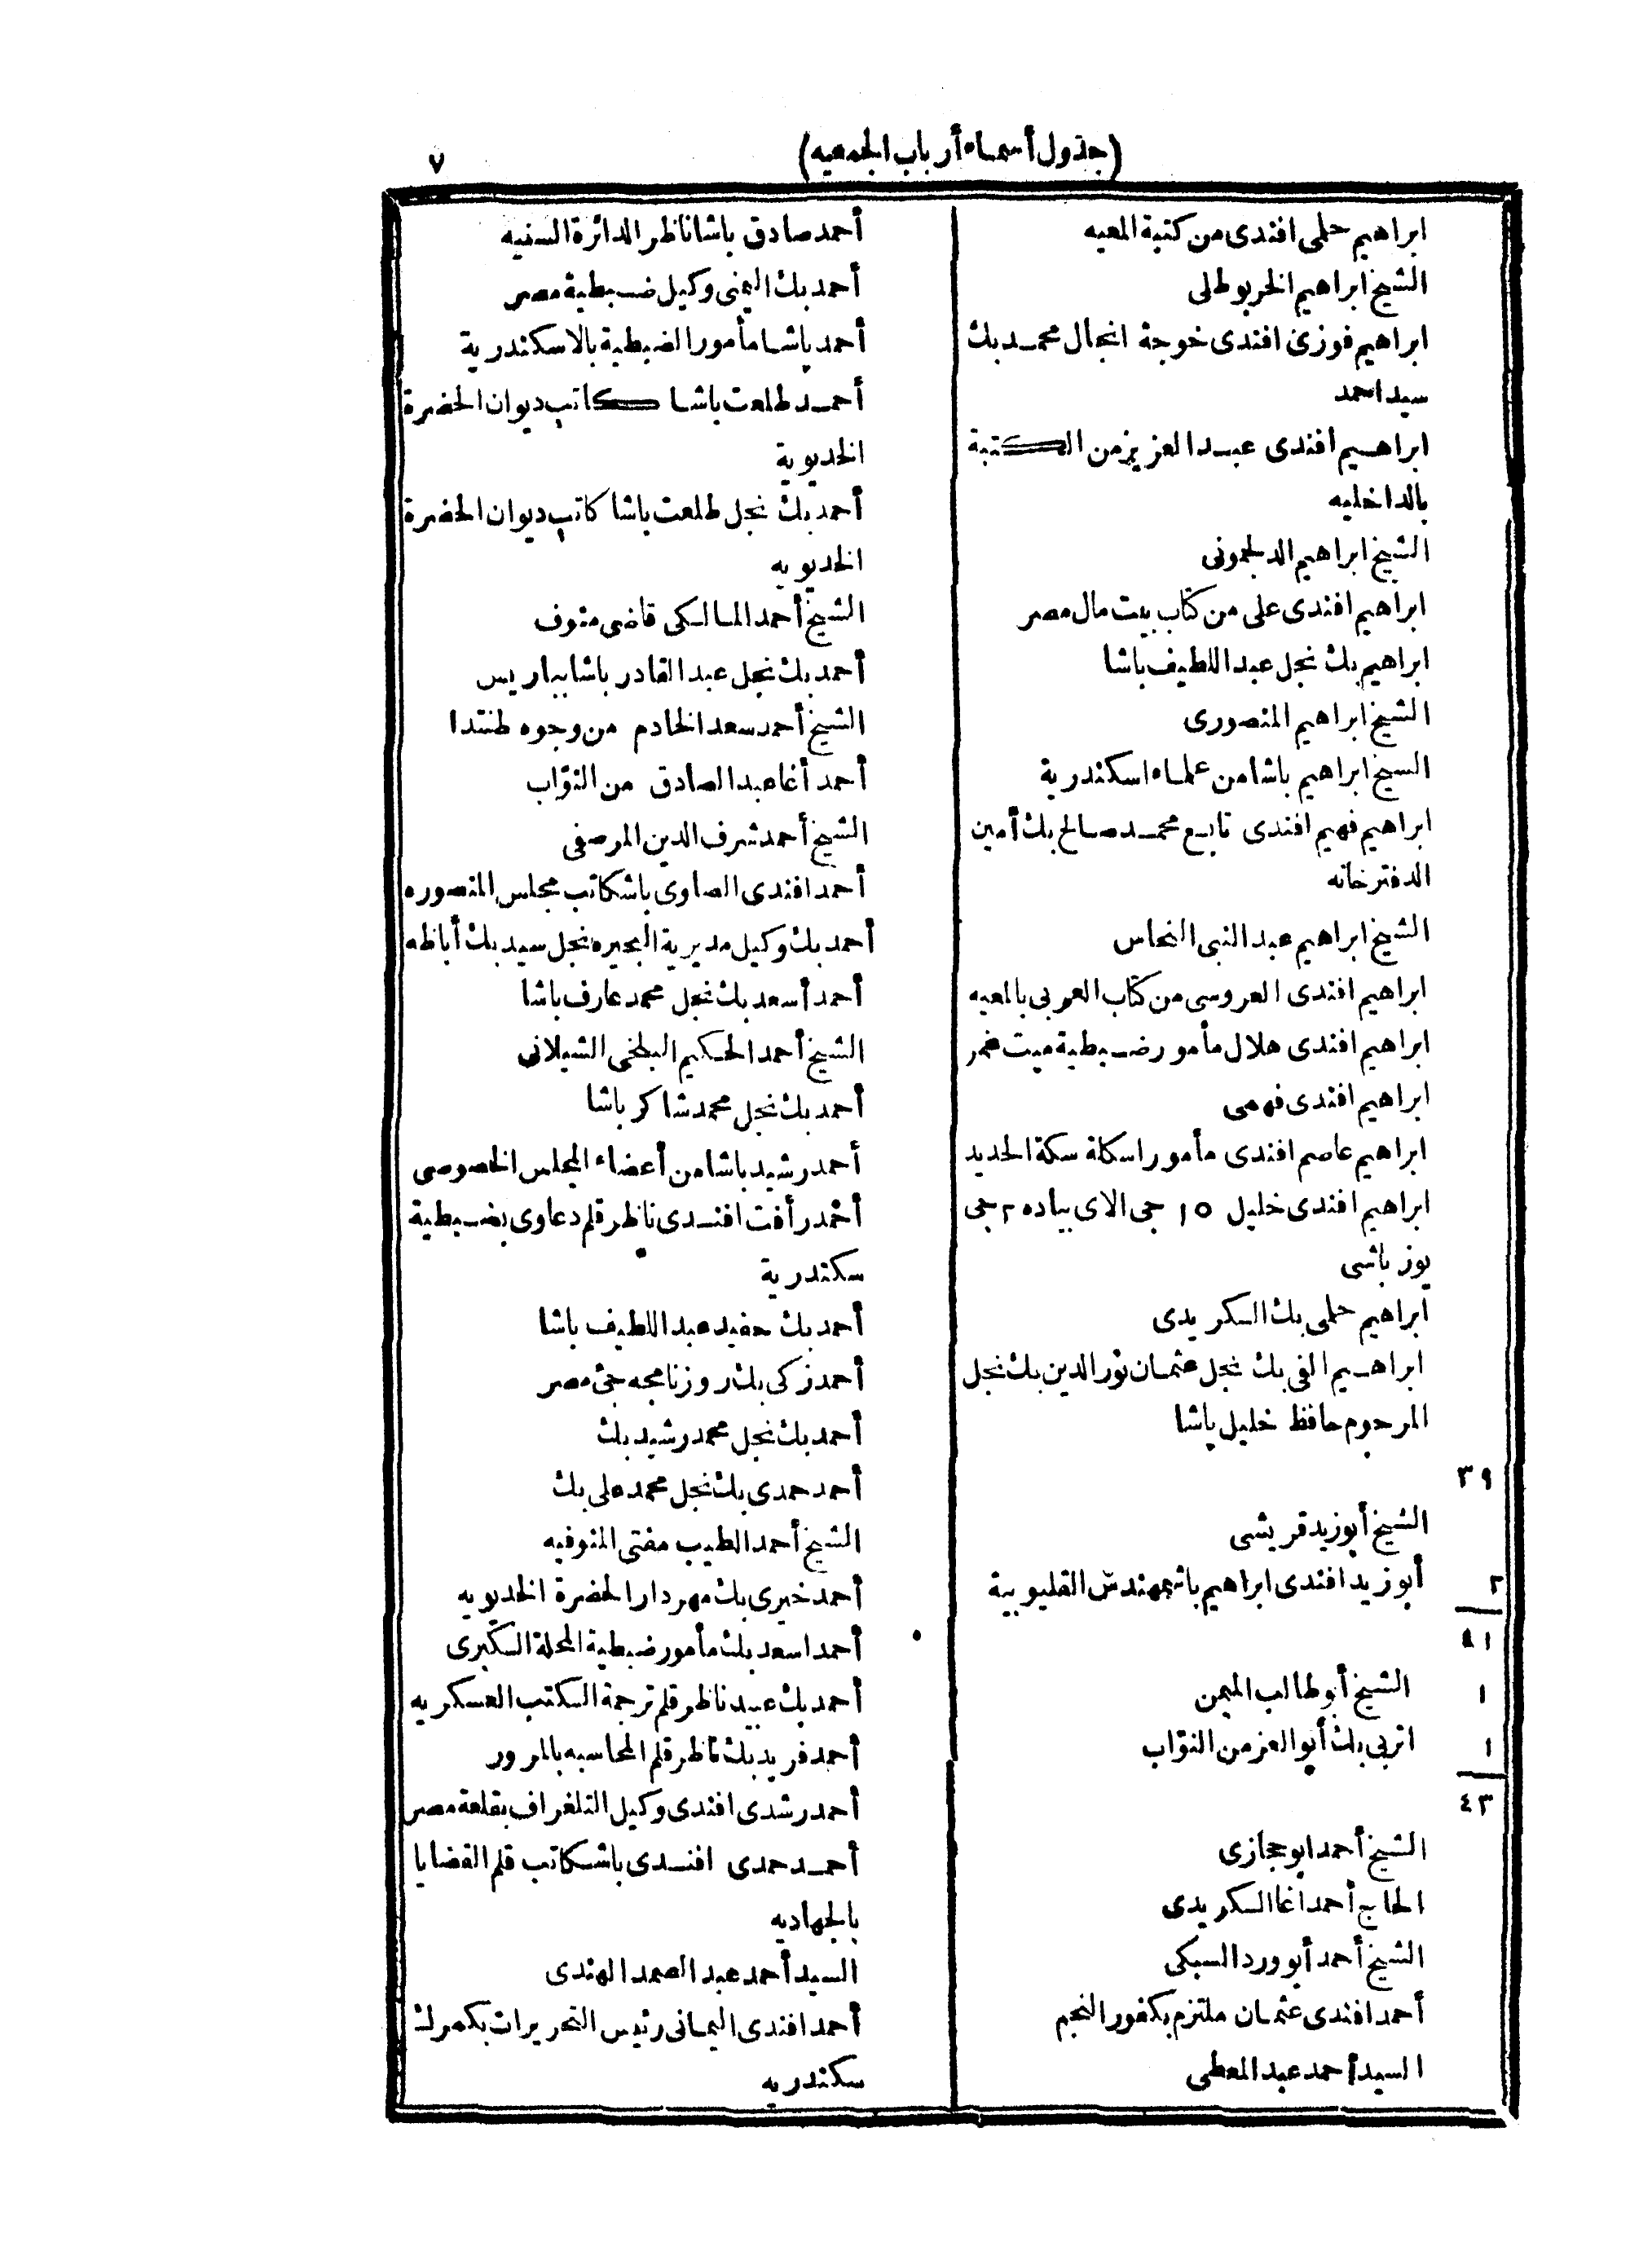 (جدول أسماء أرباب الجمعيه)
٧
ابراهيم حلمى افندى من كتبة المعيه
الشيخ ابراهيم الخربوطلى
ابراهيم فوزى افندى خوجة انجال محمد بك
سيد احمد
ابراهيم افندى عبد العزيز من الكتبة
بالداخليه
الشيخ ابراهيم الدلجمونى
ابراهيم افندى على من كتاب بيت مال مصر
ابراهيم بك نجل عبد اللطيف باشا
الشيخ ابراهيم المنصورى
السيخ ابراهيم باشا من علماء اسكندرية
ابراهيم فهيم افندى تابع محمد صالح بك أمين
الدفترخانه
الشيخ ابراهيم عبد النبى النحاس
ابراهيم افندى العروسى من كتاب العربى بالمعيه
ابراهيم افندى هلال مأمور ضبطية ميت غمر
ابراهيم افندى فهمى
ابراهيم عاصم افندى مأمور اسكلة سكة الحديد
ابراهيم افندى خليل ١٥ جى الاى بياده ٢ جى
يوز باشى
ابراهيم حلمى بك السكريدى
ابراهيم الفى بك نجل عثمان نور الدين بك نجل
المرحوم حافظ خليل باشا
٣٩
الشيخ أبوزيد قريشى
٢ أبو زيد افندى ابراهيم باشمهندس القليوبية
٤١
١ الشيخ أبو طالب الميمن
١ اتربى بك أبو العز من النوّاب
٤٣
الشيخ أحمد ابو حجازى
الحاج أحمد اغا السكريدى
الشيخ أحمد أبو ورد السبكى
أحمد افندى عثمان ملتزم بكفور النجم
السيد أحمد عبد المعطى
أحمد صادق باشا ناظر الدائرة السنيه
أحمد بك اليمنى وكيل ضبطية مصر
أحمد باشا مأمور الضبطية بالاسكندرية
أحمد طلعت باشا كاتب ديوان الحضرة
الخديوية
أحمد بك نجل طلعت باشا كاتب ديوان الحضرة
الخديويه
الشيخ أحمد المالكى قاضى منوف
أحمد بك نجل عبد القادر باشا بباريس
الشيخ أحمد سعد الخادم من وجوه طنتدا
أحمد أغا عبد الصادق من النوّاب
الشيخ أحمد شرف الدين المرصفى
أحمد افندى الصاوى باشكاتب مجلس المنصوره
أحمد بك وكيل مديرية البحيره نجل سيد بك أباظه
أحمد أسعد بك نجل محمد عارف باشا
الشيخ أحمد الحكيم البلخى الشيلانى
أحمد بك نجل محمد شاكر باشا
أحمد رشيد باشا من أعضاء المجلس الخصوصى
أحمد رأفت افندى ناظر قلم دعاوى بضبطية
سكندرية
أحمد بك حفيد عبد اللطيف باشا
أحمد زكى بك روزنامجه جئ مصر
أحمد بك نجل محمد رشيد بك
أحمد حمدى بك نجل محمد على بك
الشيخ أحمد الطيب مفتى المنوفيه
أحمد خيرى بك مهردار الحضرة الخديويه
أحمد اسعد بك مأمور ضبطية المحلة الكبرى
أحمد بك عبيد ناظر قلم ترجمة الكتب العسكريه
أحمد فريد بك ناظر قلم المحاسبه بالمرور
أحمد رشدى افندى وكيل التلغراف بقلعة مصر
أحمد حمدى افندى باشكاتب قلم القضايا
بالجهاديه
السيد أحمد عبد الصمد الهندى
أحمد افندى اليمانى رئيس التحريرات بكمرك
سكندريه